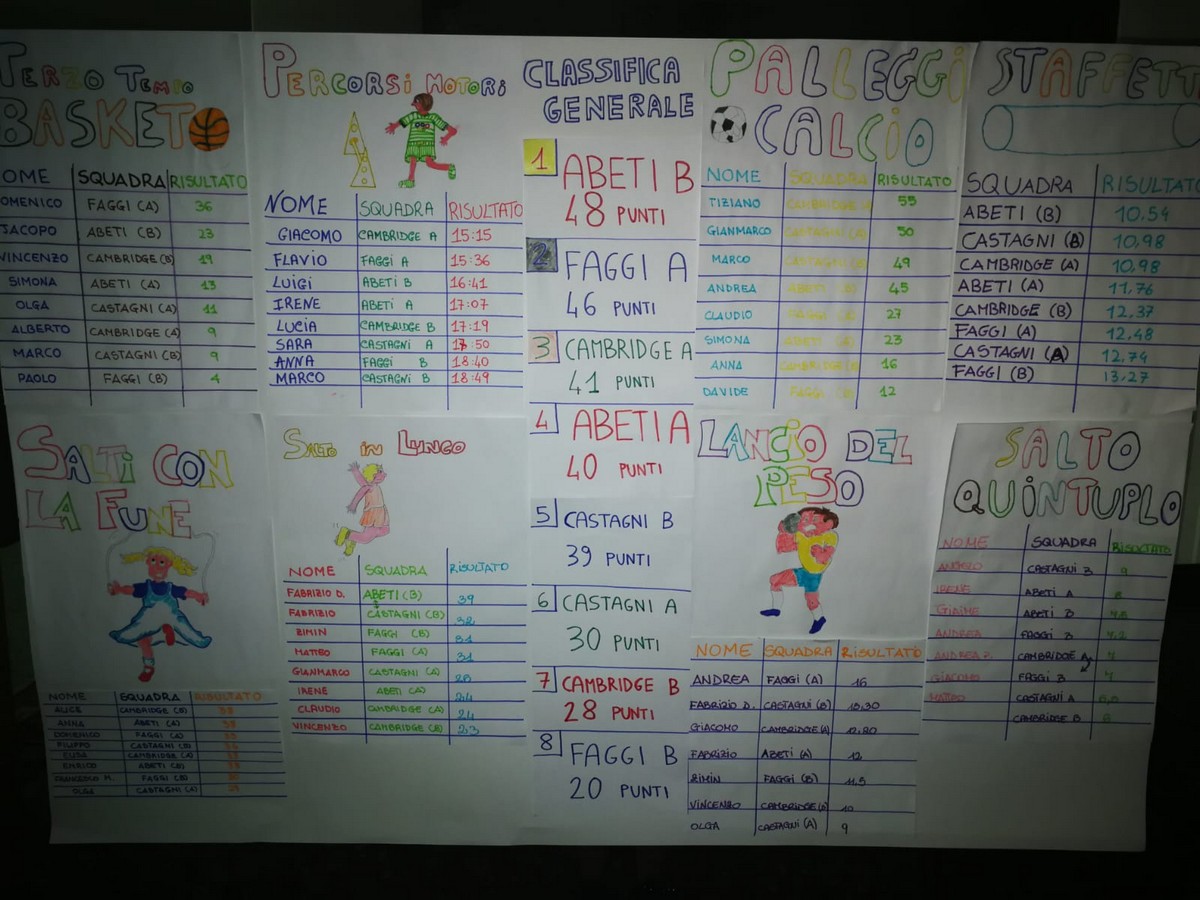 TERZO TEMPO
BASKET
NOME SQUADRA RISULTATO
DOMENICO FAGGI (A) 36
JACOPO ABETI (B) 23
VINCENZO CAMBRIDGE (B) 19
SIMONA ABETI (A) 13
OLGA CASTAGNI (A) 11
ALBERTO CAMBRIDGE (A) 9
MARCO CASTAGNI (B) 9
PAOLO FAGGI (B) 4
PERCORSI MOTORI
NOME SQUADRA RISULTATO
GIACOMO CAMBRIDGE A 15:15
FLAVIO FAGGI A 15:36
LUIGI ABETI B 16:41
IRENE ABETI A 17:07
LUCIA CAMBRIDGE B 17:19
SARA CASTAGNI A 17:50
ANNA FAGGI B 18:40
MARCO CASTAGNI B 18:49
CLASSIFICA
GENERALE
1 ABETI B
48 PUNTI
2 FAGGI A
46 PUNTI
3 CAMBRIDGE A
41 PUNTI
4 ABETI A
40 PUNTI
5 CASTAGNI B
39 PUNTI
6 CASTAGNI A
30 PUNTI
7 CAMBRIDGE B
28 PUNTI
8 FAGGI B
20 PUNTI
PALLEGGI
CALCIO
NOME SQUADRA RISULTATO
TIZIANO CAMBRIDGE 55
GIANMARCO CASTAGNI 50
MARCO CASTAGNI 49
ANDREA ABETI 45
CLAUDIO FAGGI 27
SIMONA ABETI 23
ANNA CAMBRIDGE 16
DAVIDE FAGGI 12
STAFFETT
SQUADRA RISULTATO
ABETI (B) 10.54
CASTAGNI (B) 10,98
CAMBRIDGE (A) 10,98
ABETI (A) 11,76
CAMBRIDGE (B) 12,37
FAGGI (A) 12,48
CASTAGNI (A) 12,74
FAGGI (B) 13,27
SALTI CON
LA FUNE
NOME SQUADRA RISULTATO
ALICE CAMBRIDGE (B)
ANNA ABETI (A)
DOMENICO FAGGI (A)
FILIPPO CASTAGNI (B)
ELISA CAMBRIDGE (A)
ENRICO ABETI (B)
FRANCESCO M. FAGGI (B)
OLGA CASTAGNI (A)
SALTO IN LUNGO
NOME SQUADRA RISULTATO
FABRIZIO D. ABETI (B) 39
FABRIZIO CASTAGNI (B) 32
RIMIN FAGGI (B) 31
MATTEO FAGGI (A) 31
GIANMARCO CASTAGNI (A)
IRENE ABETI (A) 24
CLAUDIO CAMBRIDGE (A) 24
VINCENZO CAMBRIDGE (B) 23
LANCIO DEL
PESO
NOME SQUADRA RISULTATO
ANDREA FAGGI (A) 16
FABRIZIO D. CASTAGNI (B) 13,30
GIACOMO CAMBRIDGE (A) 12,80
FABRIZIO ABETI (A) 12
RIMIN FAGGI (B) 11,5
VINCENZO CAMBRIDGE (B) 10
OLGA CASTAGNI (A) 9
SALTO
QUINTUPLO
NOME SQUADRA RISULTATO
ANGELO CASTAGNI B 9
IRENE ABETI A 8
GIAIME ABETI B
ANDREA FAGGI B 7,2
ANDREA Z. CAMBRIDGE A 7
GIACOMO FAGGI B 7
MATTEO CASTAGNI A
CAMBRIDGE B 6